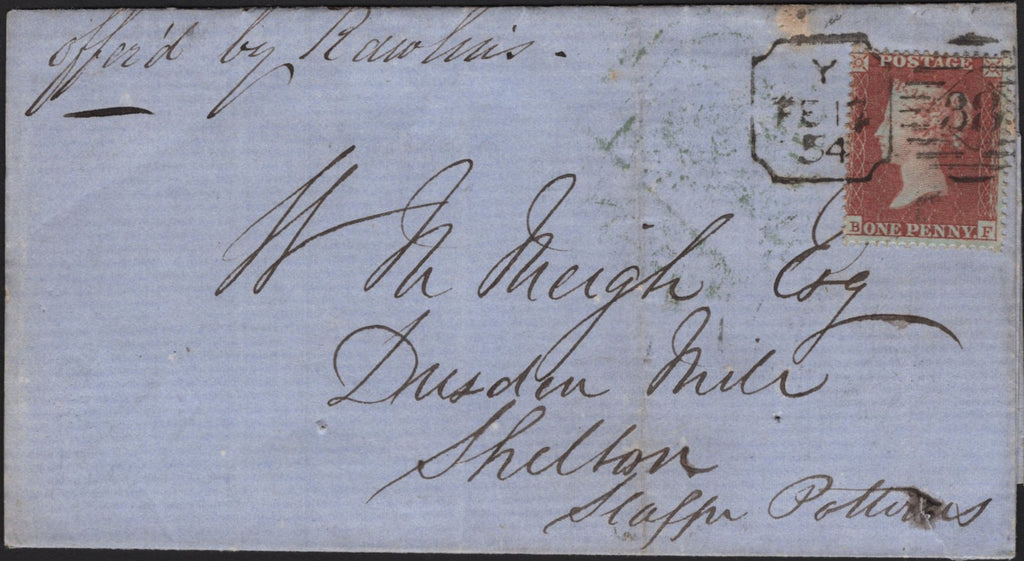 offer'd by Rawlins -
Y
FE 13
54
POSTAGE
38
B ONE PENNY F
W M Meigh Esq
Dresden Mill
Shelton
Staffr Potteries